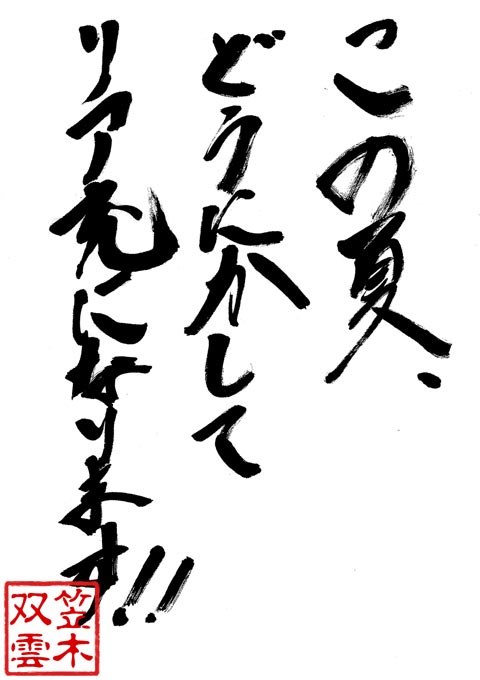 この夏、
どうにかして
リア充になります!!
笠木
双雲